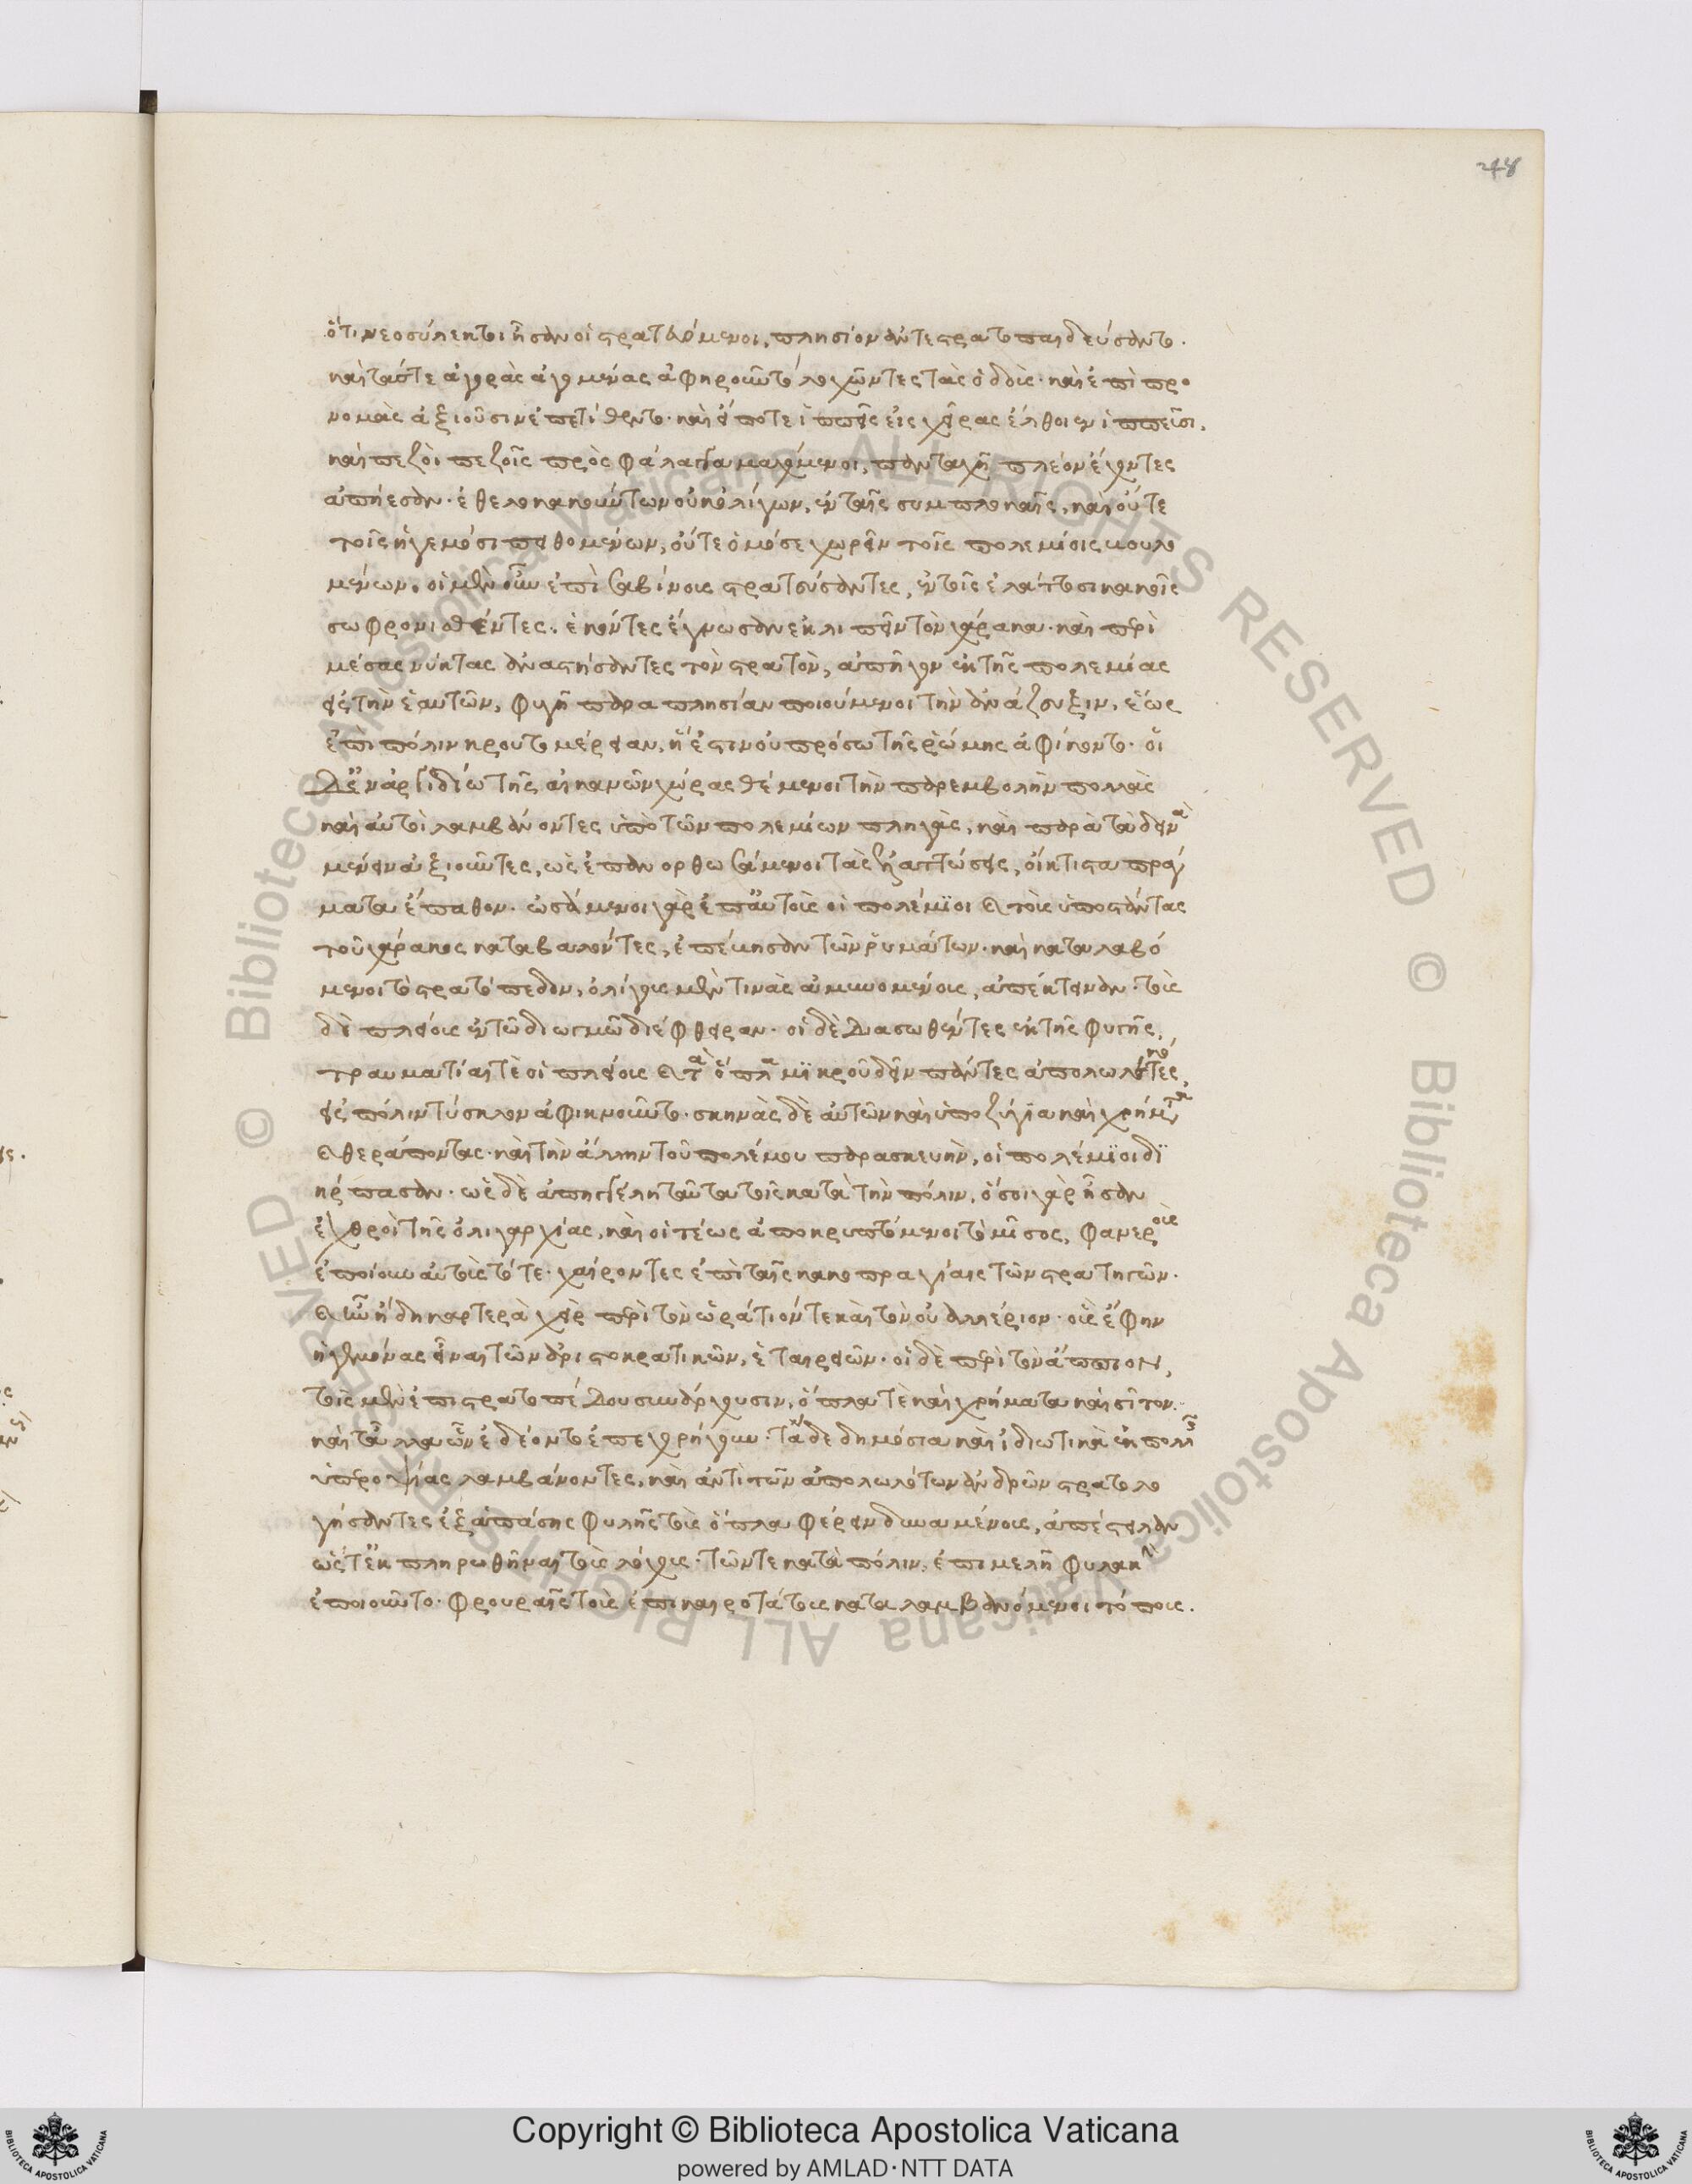 248
ὅτι νεοσύλεκτοι ἦσαν οἱ στρατευόμενοι, πλησίον ἀντεστρατοπαιδεύσαντο.
καὶ τάς τε ἀγορὰς ἀγομένας ἀφηροῦντο λοχῶντες τὰς ὁδοὺς. καὶ ἐπὶ προ
νομὰς ἀξιοῦσιν ἐπετίθεντο. καὶ εἴποτε ἱππεῖς εἰς χεῖρας ἔλθοιεν ἱππεῦσι,
καὶ πεζοὶ πεζοῖς πρὸς φάλαγγα μαχόμενοι, πανταχῆ πλέον ἔχοντες
ἀπήεσαν. ἐθελοκακούντων οὐκ ὀλίγων, ἐν ταῖς συμπλοκαῖς, καὶ οὔτε
τοῖς ἡγεμόσι πειθομένων, οὔτε ὁμόσε χωρεῖν τοῖς πολεμίοις βουλο
μένων. οἱ μὲν οὖν ἐπὶ σαβίνους στρατεύσαντες, ἐν τοῖς ἐλάττοσι κακοῖς
σωφρονισθέντες. ἑκόντες ἔγνωσαν ἐκλιπεῖν τὸν χάρακα. καὶ περὶ
μέσας νύκτας ἀναστήσαντες τὸν στρατὸν, ἀπῆγον ἐκ τῆς πολεμίας
εἰς τὴν ἑαυτῶν, φυγῆ παραπλησίαν ποιούμενοι τὴν ἀνάζευξιν, ἕως
ἐπὶ πόλιν κρουστομέρειαν, ἥ ἐστιν οὐ πρόσω τῆς ῥώμης ἀφίκοντο. οἱ
δ' ἐν ἀργιδίω τῆς αἰκανῶν χώρας θέμενοι τὴν παρεμβολὴν πολλὰς
καὶ αὐτοὶ λαμβάνοντες ὑπὸ τῶν πολεμίων πληγὰς, καὶ παρὰ τὰ δεινὰ
μένειν ἀξιοῦντες, ὡς ἐπανορθωσάμενοι τὰς ἐλαττώσεις, οἴκτιστα πράγ
ματα ἔπαθον. ὠσάμενοι γὰρ ἐπ' αὐτοὺς οἱ πολέμιοι καὶ τοὺς ὑποστάντας
τοῦ χάρακος καταβαλόντες, ἐπέβησαν τῶν ῥυμάτων. καὶ καταλαβό
μενοι τὸ στρατόπεδον, ὀλίγους μὲν τινὰς ἀμυνομένους, ἀπέκτειναν. τοὺς
δὲ πλείους ἐν τῶ διωγμῶ διέφθειραν. οἱ δὲ διασωθέντες ἐκ τῆς φυγῆς,
τραυματίαι τὲ οἱ πλείους καὶ τὰ ὅπλα μικροῦ δεῖν πάντες ἀπολωλεκότες,
εἰς πόλιν τύσκλον ἀφικνοῦντο. σκηνὰς δὲ αὐτῶν καὶ ὑποζύγια καὶ χρήματα
καὶ θεράποντας. καὶ τὴν ἄλλην τοῦ πολέμου παρασκευὴν, οἱ πολέμιοι δι
ήρπασαν. ὡς δὲ ἀπηγγέλη ταῦτα τοῖς κατὰ τὴν πόλιν, ὅσοι γὰρ ἦσαν
ἐχθροὶ τῆς ὀλιγαρχίας, καὶ οἱ τέως ἀποκρυπτόμενοι τὸ μῖσος, φανεροὺς
ἐποίουν αὑτοὺς τότε. χαίροντες ἐπὶ ταῖς κακοπραγίαις τῶν στρατηγῶν.
καὶ ἦν ἤδη καρτερὰ χεὶρ περὶ τὸν ὡράτιόν τε καὶ τὸν οὐαλλέριον. οὓς ἔφην
ἡγεμόνας εἶναι τῶν ἀριστοκρατικῶν, ἑταιρειῶν. οἱ δὲ περὶ τὸν ἄππιον,
τοῖς μὲν ἐπὶ στρατοπέδου συναρχουσιν, ὅπλα τὲ καὶ χρήματα καὶ σῖτον.
καὶ τἆλλα ὧν ἐδέοντο ἐπεχορήγουν. τά τε δημόσια καὶ ἰδιωτικὰ ἐκ πολλῆς
ὑπεροψίας λαμβάνοντες, καὶ ἀντὶ τῶν ἀπολωλότων ἀνδρῶν στρατολο
γήσαντες ἐξ ἁπάσης φυλῆς τοὺς ὅπλα φέρειν δυναμένους, ἀπέστειλαν
ὥστ' ἐκπληρωθῆναι τοὺς λόχους. τῶν τε κατὰ πόλιν, ἐπιμελῆ φυλακὴν
ἐποιοῦντο. φρουραῖς τοὺς ἐπικαιροτάτους καταλαμβανόμενοι τόπους.
© Biblioteca Apostolica Vaticana ALL RIGHTS RESERVED © Biblioteca Apostolica Vaticana ALL RIGHTS RESERVED
Copyright © Biblioteca Apostolica Vaticana
powered by AMLAD・NTT DATA